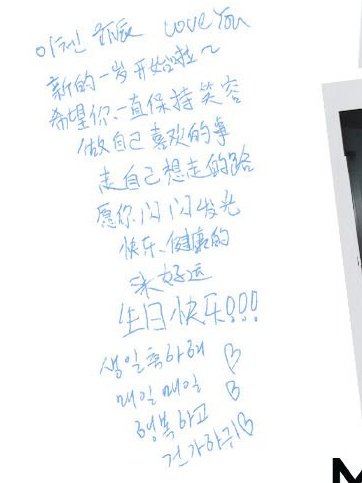 이천 Love You
新的一岁开始啦~
希望你一直保持笑容
做自己喜欢的事
走自己想走的路
愿你闪闪发光
快乐、健康的
来好运
生日快乐!!!
생일축하해 ♡
매일매일 ♡
행복하고
건강하귀♡
M